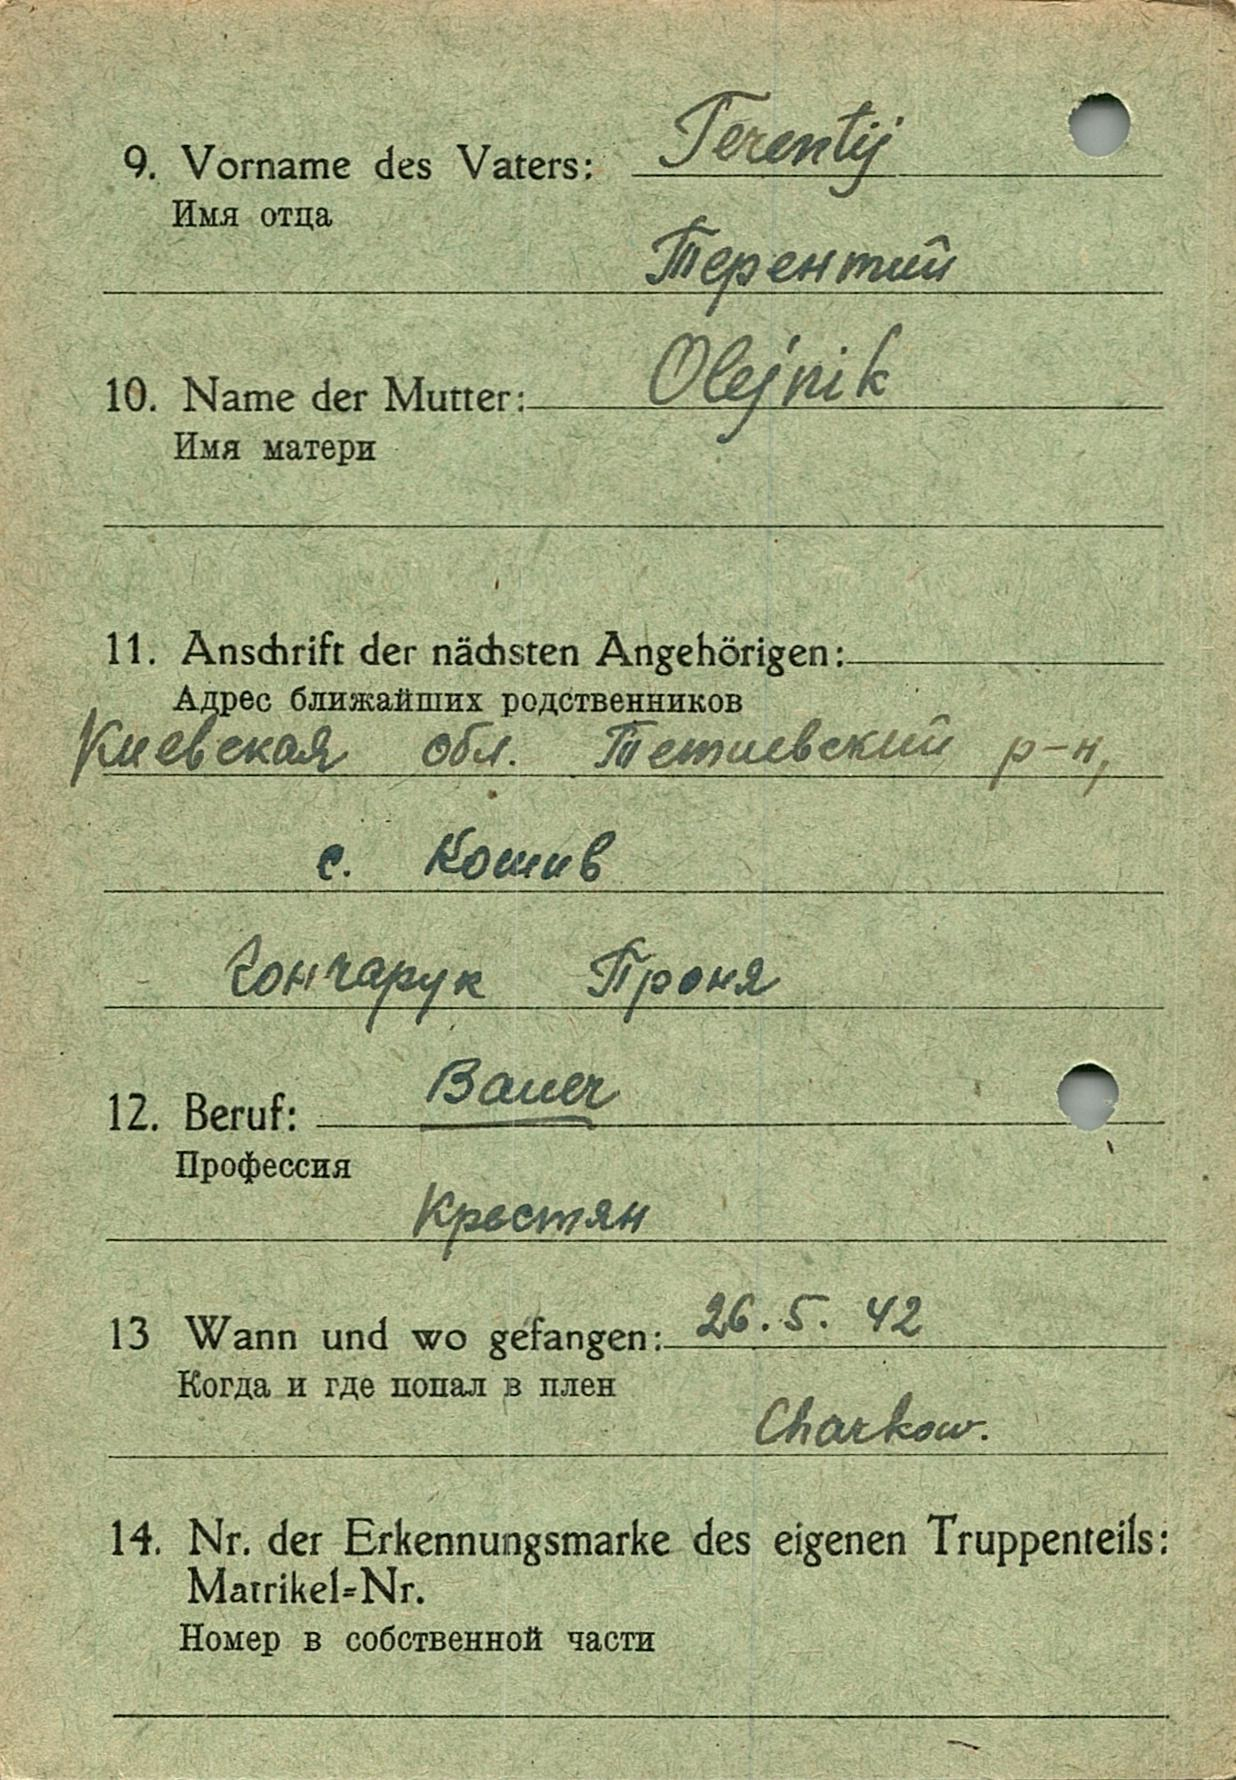 9. Vorname des Vaters: Terentij
Имя отца
Терентий
10. Name der Mutter: Olejnik
Имя матери
11. Anschrift der nächsten Angehörigen:
Адрес ближайших родственников
Киевская обл. Тетиевский р-н,
с. Кошив
Гончарук Проня
12. Beruf: Bauer
Профессия
Крестян
13 Wann und wo gefangen: 26. 5. 42
Когда и где попал в плен
Charkow.
14. Nr. der Erkennungsmarke des eigenen Truppenteils:
Matrikel=Nr.
Номер в собственной части